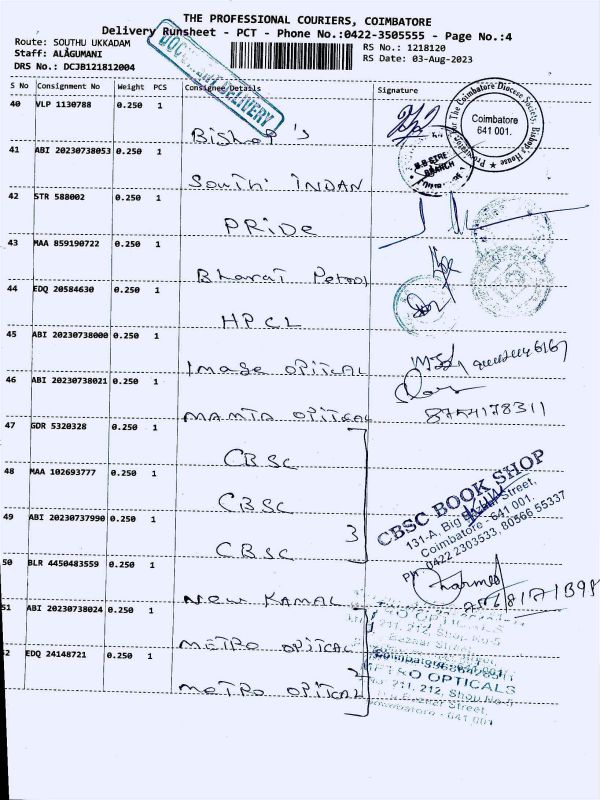 THE PROFESSIONAL COURIERS, COIMBATORE
Delivery Runsheet - PCT - Phone No.:0422-3505555 - Page No.:4
Route: SOUTHU UKKADAM
RS No.: 1218120
Staff: ALAGUMANI
RS Date: 03-Aug-2023
DRS No.: DCJB121812004
DOCUMENT DELIVERY
S No Consignment No Weight PCS Consignee Details Signature
40 VLP 1130788 0.250 1 Bishop's
Coimbatore Diocese Society, Bishop's House
Coimbatore
641 001.
41 ABI 20230738053 0.250 1 South INDAN
BRANCH
42 STR 588002 0.250 1 PRIDE
43 MAA 859190722 0.250 1 Bharat Petrol
44 EDQ 20584630 0.250 1 HPCL
45 ABI 20230738000 0.250 1 Image OPITCAL
46 ABI 20230738021 0.250 1 MAMTA OPITCAL
8754178311
47 GDR 5320328 0.250 1 CBSC
48 MAA 102693777 0.250 1 CBSC
49 ABI 20230737990 0.250 1 CBSC
3
CBSC BOOK SHOP
131-A, Big Bazaar Street,
Coimbatore - 641 001.
Ph: 0422 2303533, 80566 55337
50 BLR 4450483559 0.250 1 New KAMAL
51 ABI 20230738024 0.250 1 METRO OPITCAL
52 EDQ 24148721 0.250 1 METRO OPITCAL
2
METRO OPTICALS
211, 212, Shop No-5
Bazaar Street,
Coimbatore - 641 001